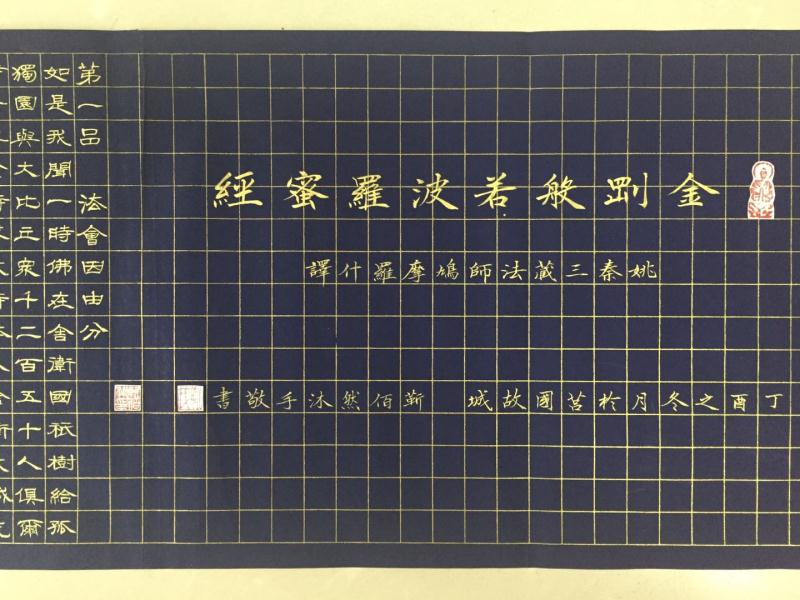 金剛般若波羅蜜經
姚秦三藏法師鳩摩羅什譯
丁酉之冬月於莒國故城 靳佰然沐手敬書
第一品 法會因由分
如是我聞一時佛在舍衛國祇樹給孤
獨園與大比丘眾千二百五十人俱爾